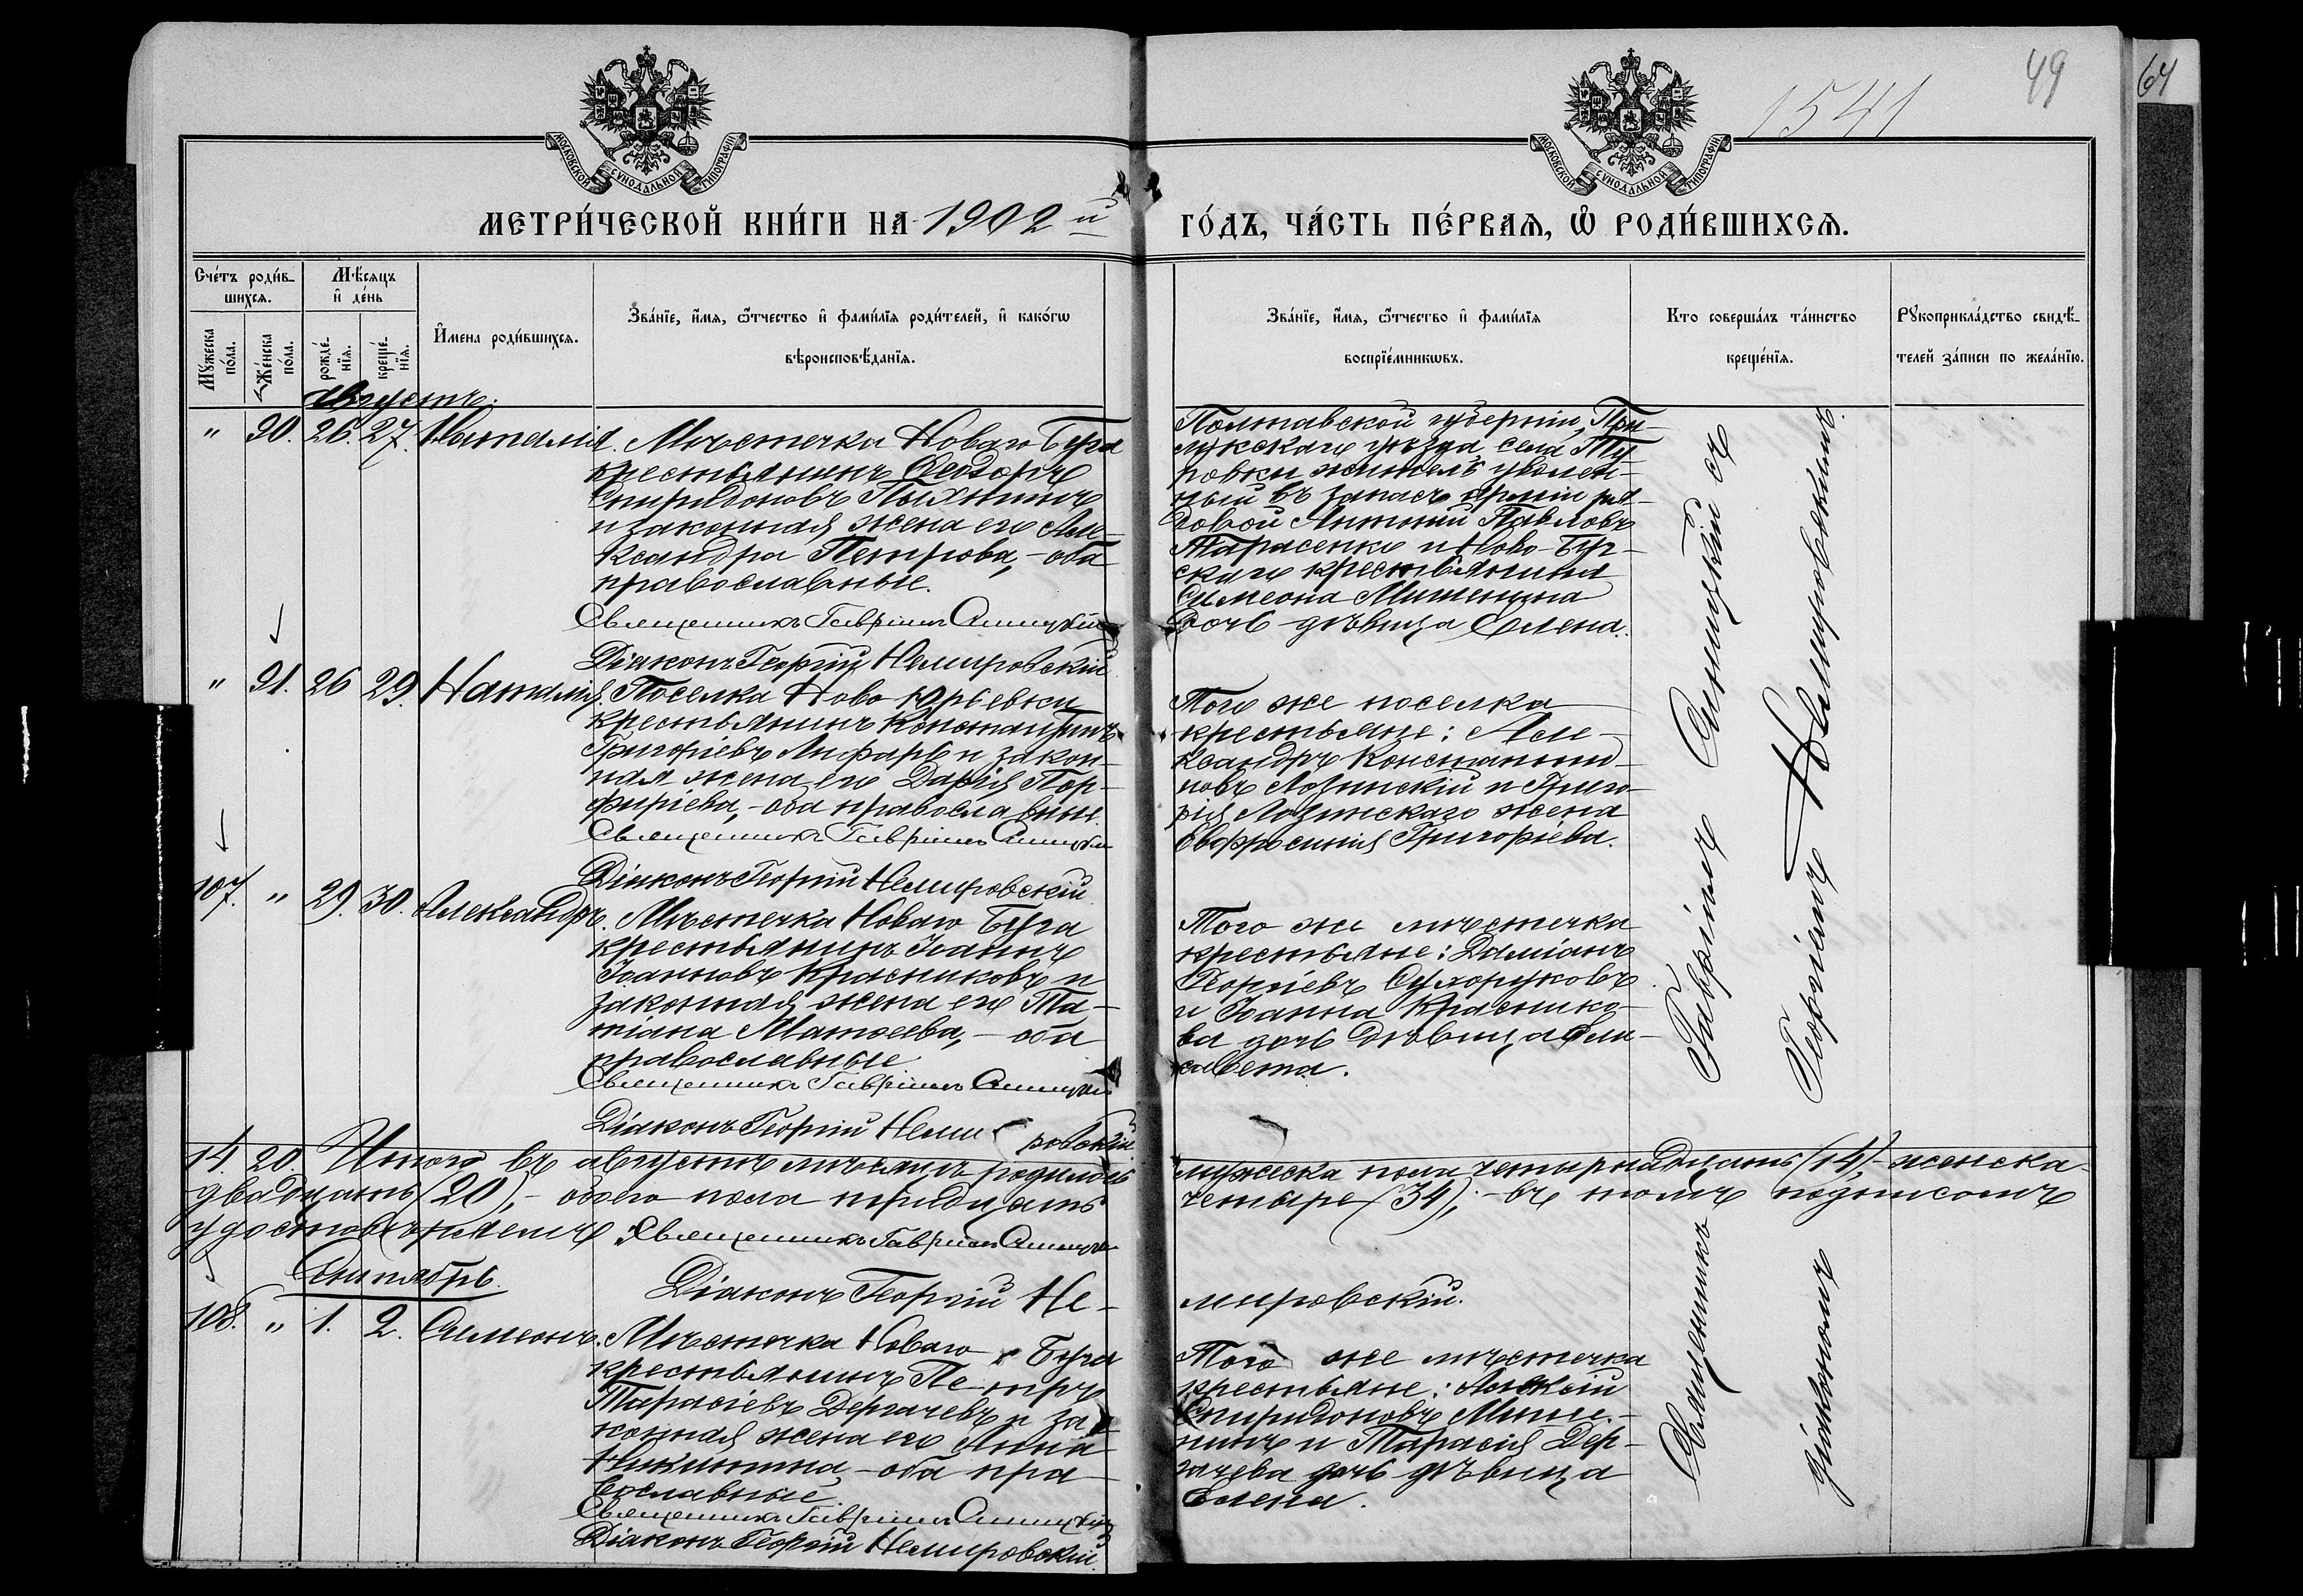 49
64
1541
МОСКОВСКОЙ СѴНОДАЛЬНОЙ ТИПОГРАФІИ
МОСКОВСКОЙ СѴНОДАЛЬНОЙ ТИПОГРАФІИ
МЕТРИ́ЧЕСКОЙ КНИ́ГИ НА 1902й
ГО́ДЪ, ЧА́СТЬ ПЕ́РВАѦ, Ѽ РОДИ́ВШИХСѦ.
Сче́тъ роди́в-
шихсѧ.
Мꙋ́жеска по́ла.
Же́нска по́ла.
Мѣ́сяцъ
и҆ де́нь
рожде́-
нїѧ.
креще́-
нїѧ.
И҆мена роди́вшихсѧ.
Зва́нїе, и҆́мѧ, ѻ҆́тчество и҆ фами́лїѧ роди́телей, и҆ како́гѡ
вѣроисповѣ́данїѧ.
Зва́нїе, и҆́мѧ, ѻ҆́тчество и҆ фами́лїѧ
воспрїе́мникѡвъ.
Кто соверша́лъ та́инство
креще́нїѧ.
Рꙋкоприкла́дство свидѣ́-
телей за́писи по жела́нїю.
Августъ.
" 90. 26. 27. Наталія. Мѣстечка Новаго Буга
крестьянинъ Ѳеодоръ
Спиридоновъ Пыхтинъ
и законная жена его Але-
ксандра Петрова, - оба
православные.
Священникъ Гавріилъ Синицкій
Діаконъ Георгій Немировскій
Полтавской губерніи, При-
лукскаго уѣзда села Ту-
ровки житель уволен-
ный въ запасъ арміи ря-
довой Антоній Павловъ
Тарасенко и Ново-Буг-
скаго крестьянина
Симеона Мишенина
дочь - дѣвица Елена.
" 91. 26 29. Наталія. Поселка Ново-Юрьевки
крестьянинъ Константинъ
Григоріевъ Лифарь и закон-
ная жена его Дарія Пор-
фиріева, - оба православные.
Священникъ Гавріилъ Синицкій
Діаконъ Георгій Немировскій.
Того же поселка
крестьяне: Але-
ксандръ Константи-
новъ Лозинскій и Григо-
рія Лозинскаго жена
Евфросинія Григоріева.
107. " 29. 30. Александръ. Мѣстечка Новаго Буга
крестьянинъ Іоаннъ
Іоанновъ Красниковъ и
законная жена его Та-
тіана Матѳеева, - оба
православные
Священникъ Гавріилъ Синицкій
Діаконъ Георгій Немировскій.
Того же мѣстечка
крестьяне: Даміанъ
Георгіевъ Сухоруковъ
и Іоанна Краснико-
ва дочь дѣвица Ели-
савета.
14. 20. Итого въ августѣ мѣсяцѣ родилось мужеска пола четырнадцать (14), - женска
двадцать (20), - обоего пола тридцать четыре (34); - въ томъ подписомъ
удостовѣряемъ: Священникъ Гавріилъ Синицкій
Діаконъ Георгій Немировскій.
Сентябрь.
108. " 1. 2. Симеонъ. Мѣстечка Новаго Буга
крестьянинъ Петръ
Тарасіевъ Дергачевъ и за-
конная жена его Анна
Никитина, - оба пра-
вославные
Священникъ Гавріилъ Синицкій
Діаконъ Георгій Немировскій.
Того же мѣстечка
крестьяне: Алексій
Спиридоновъ Мише-
нинъ и Тарасія Дер-
гачева дочь дѣвица
Елена.
Священникъ Гавріилъ Синицкій съ
діакономъ Георгіемъ Немировскимъ.